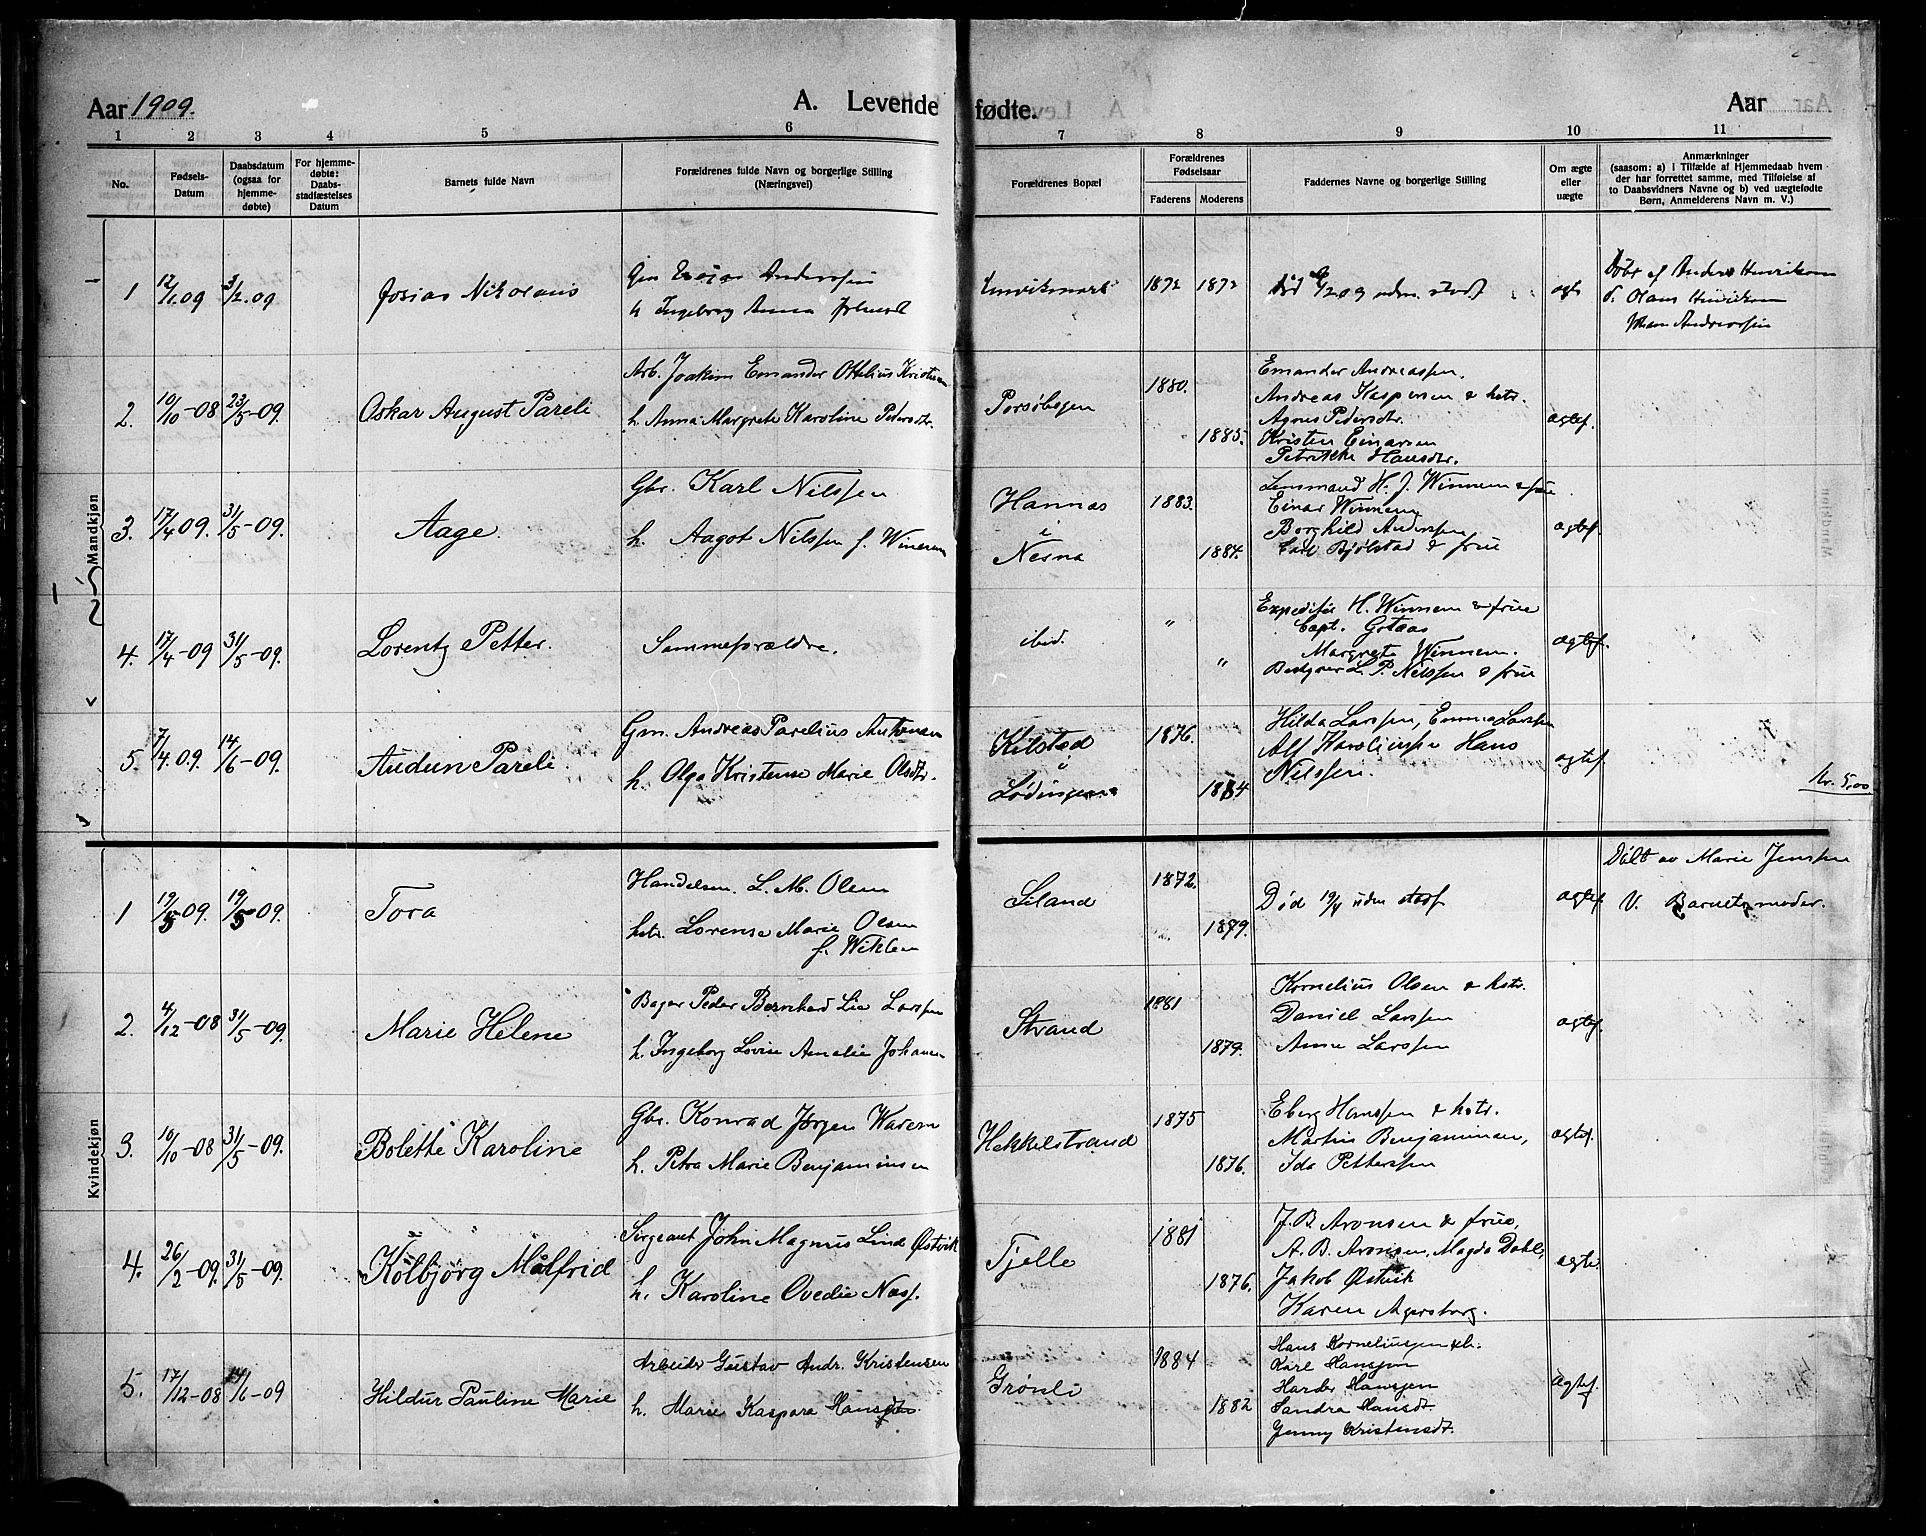 Aar 1909. A. Levende fødte. Aar
1 2 3 4 5 6 7 8 9 10 11
No.
Fødsels-
Datum
Daabsdatum
(ogsaa for
hjemme-
døbte)
For hjemme-
døbte:
Daabs-
stadfæstelses
Datum
Barnets fulde Navn
Forældrenes fulde Navn og borgerlige Stilling
(Næringsvei)
Forældrenes Bopæl
Forældrenes
Fødselsaar
Faderens Moderens
Faddernes Navne og borgerlige Stilling
Om ægte
eller
uægte
Anmærkninger
(saasom: a) i Tilfælde af Hjemmedaab hvem
der har forrettet samme, med Tilføielse af
to Daabsvidners Navne og b) ved uægtefødte
Børn, Anmelderens Navn m. V.)
Mandkjøn
1 12/1 09 3/2 09 Josias Nikolaus
Andersen
h Ingeborg Anna
1872 1872
Død 6/2 09 uden stadf
Døbt af Anders Henriksen
Olaus Henriksen
Andreassen
2. 10/10-08 23/5-09. Oskar August Pareli
Arb. Joakim Emander Ottelius Kristensen
h. Anna Margrete Karoline Pedersdtr.
Porsøbogen
1880.
1885.
Emander Andreassen.
Andreas Kaspersen & hstr.
Agnes Pedersdtr.
Kristen Einarsen
Petrikke Hansdtr.
ægtef.
3. 17/4 09. 31/5-09. Aage.
Gbr. Karl Nilssen
h. Aagot Nilssen f. Winnem
Hannas
i
Nesna
1883.
1884.
Lensmand H. J. Winnem & frue
Einar Winnem
Borghild Anderssen
Carl Bjølstad & frue
ægtef.
4. 17/4-09 31/5-09. Lorentz Petter.
Sammeforældre.
ibid.
"
"
Expeditør H. Winnem & frue
Capt. Gotaas
Margrete Winnem.
L. P. Nilssen & frue
ægtef.
5. 7/4 09. 14/6-09. Audun Pareli.
Gm. Andreas Parelius Antonsen
h. Olga Kristense Marie Olsdtr.
Kilstad
i
Lødingen
1876.
1884
Hilda Larssen, Emma Larssen
Alf Karoliussen Hans
Nilssen.
ægtef.
kr. 5,00
Kvindekjøn
1 19/5 09. 19/5-09. Tora
Handelsm. L. M. Olsen
hstr. Lorense Marie Olsen
f. Wiklem
Liland
1872.
1879.
Død 19/4 uden stadf
ægtef.
Døbt av Marie Jenssen
V. Barnets moder.
2. 4/12-08 31/5-09. Marie Helene
Bager Peder Bernhard Lie Larssen
h. Ingeborg Lovise Amalie Johansen
Strand
1881
1879.
Kornelius Olsen & hstr.
Daniel Larssen
Anna Larssen
ægtef.
3. 10/10-08 31/5-09. Bolette Karoline
Gbr. Konrad Jørgen Warem
h. Petra Marie Benjaminsen
Hekkelstrand
1875
1876.
Eberg Hanssen & hstr.
Martin Benjaminsen,
Ida Petterssen
ægtef.
4. 26/2-09. 31/5-09. Kolbjørg Målfrid
Sergeant John Magnus Lind Østvik
h. Karoline Ovedie Næss.
Tjelle
1881
1876.
J. B. Aronsen & frue,
A. B. Aronsen, Magda Dahl,
Jakob Østvik
Karen Agersborg.
ægtef.
5. 17/12-08 14/6-09 Hildur Pauline Marie
Arbeider Gustav Andr. Kristensen
h. Marie Kaspara Hansdtr.
Grønli
1884
1882
Hans Korneliussen & h.
Karl Hanssen
Harder Hanssen
Sandra Hansdt.
Jenny Kristensdt.
ægtef.